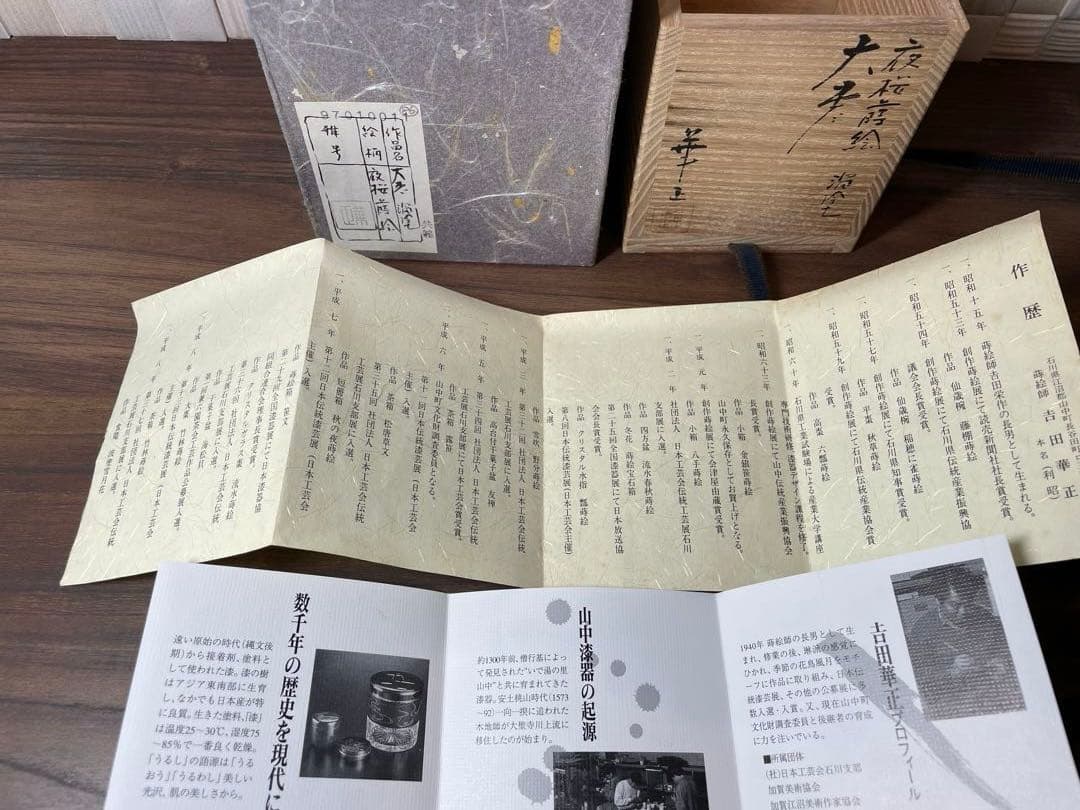 9701001
作品名 大棗 溜塗
絵柄 夜桜蒔絵
雅号
共箱
夜桜蒔絵
大棗
溜塗
華正
作歴
石川県江沼郡山中町長谷田町
蒔絵師 吉田華正
本名(利昭)
一、昭和十五年 蒔絵師吉田栄作の長男として生まれる。
一、昭和五十三年 創作蒔絵展にて読売新聞社社長賞受賞。
作品 仙歳椀 藤棚蒔絵
一、昭和五十四年 創作蒔絵展にて石川県伝統産業振興協
議会会長賞受賞。
作品 仙歳椀 稲穂に雀蒔絵
一、昭和五十七年 創作蒔絵展にて石川県知事賞受賞。
作品 平棗 秋草蒔絵
一、昭和五十九年 創作蒔絵展にて石川県伝統産業協会賞
受賞。
作品 高棗 六瓢蒔絵
一、昭和六十年 石川県工業試験場による産業大学講座
専門技術研修、漆器デザイン課程を修了。
一、昭和六十三年 創作蒔絵展にて山中伝統産業振興協会
長賞受賞。
作品 小箱 金銀笹蒔絵
山中町永久保存としてお買上げとなる。
一、平成元年 創作蒔絵展にて会津屋由蔵賞受賞。
作品 小箱 八手蒔絵
社団法人 日本工芸会伝統工芸展石川
支部展に入選。
作品 四方盆 流水春秋蒔絵
作品 冬花 蒔絵宝石箱
第二十五回全国漆器展にて日本放送協
会会長賞受賞。
作品 クリスタル水指 瓢蒔絵
第八回日本伝統漆芸展(日本工芸会主催)
入選。
作品 雪吹 野分蒔絵
一、平成三年 第三十二回 社団法人 日本工芸会伝統
工芸展石川支部展に入選。
作品 高台付干菓子盆 友禅
一、平成五年 第三十四回 社団法人 日本工芸会伝統
工芸展石川支部展にて日本工芸会賞受賞。
作品 茶箱 露芝
一、平成六年 山中町文化財調査委員となる。
第十一回日本伝統漆芸展(日本工芸会
主催)入選。
作品 松唐草文
第三十五回 社団法人 日本工芸会伝統
工芸展石川支部展に入選。
作品 短冊箱 秋の夜蒔絵
一、平成七年 第十二回日本伝統漆芸展(日本工芸会
主催)入選。
作品 蒔絵箱 笹文
第二十九回全国漆器展にて日本漆器協
同組合連合会理事長賞受賞。
作品 クリスタルグラス棗 流水蒔絵
数千年の歴史を現代に
遠い原始の時代(縄文後
期)から接着剤、塗料と
して使われた漆。漆の樹
はアジア東南部に生育
し、なかでも日本産が特
に良質。生きた塗料、「漆」
は温度25〜30℃、湿度75
〜85%で一番良く乾燥。
「うるし」の語源は「うる
おう」「うるわし」美しい
光沢、肌の美しさから。
山中漆器の起源
約1300年前、僧行基によっ
て発見された“いで湯の里
山中”と共に育まれてきた
漆器。安土桃山時代(1573
〜92)一向一揆に追われた
木地師が大聖寺川上流に
移住したのが始まり。
吉田華正プロフィール
1940年 蒔絵師の長男として生
まれ、修業の後、琳派の感覚に
ひかれ、季節の花鳥風月をモチ
ーフに作品に取り組み、日本伝
統漆芸展、その他の公募展に多
数入選・入賞。又、現在山中町
文化財調査委員と後継者の育成
に力を注いでいる。
■所属団体
(社)日本工芸会石川支部
加賀美術協会
加賀江沼美術作家協会